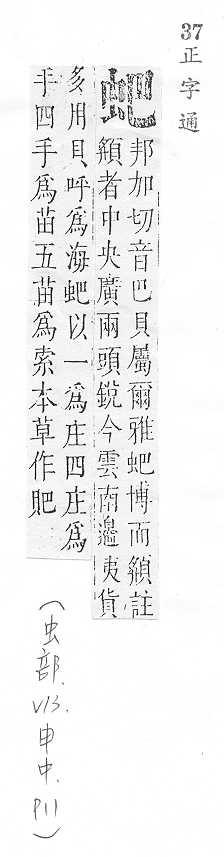 37 正字通
蚆
邦加切音巴貝屬爾雅蚆博而頯註
頯者中央廣兩頭銳今雲南邊夷貨
多用貝呼爲海蚆以一爲庄四庄爲
手四手爲苗五苗爲索本草作肥
(虫部. V13. 申中. P11)